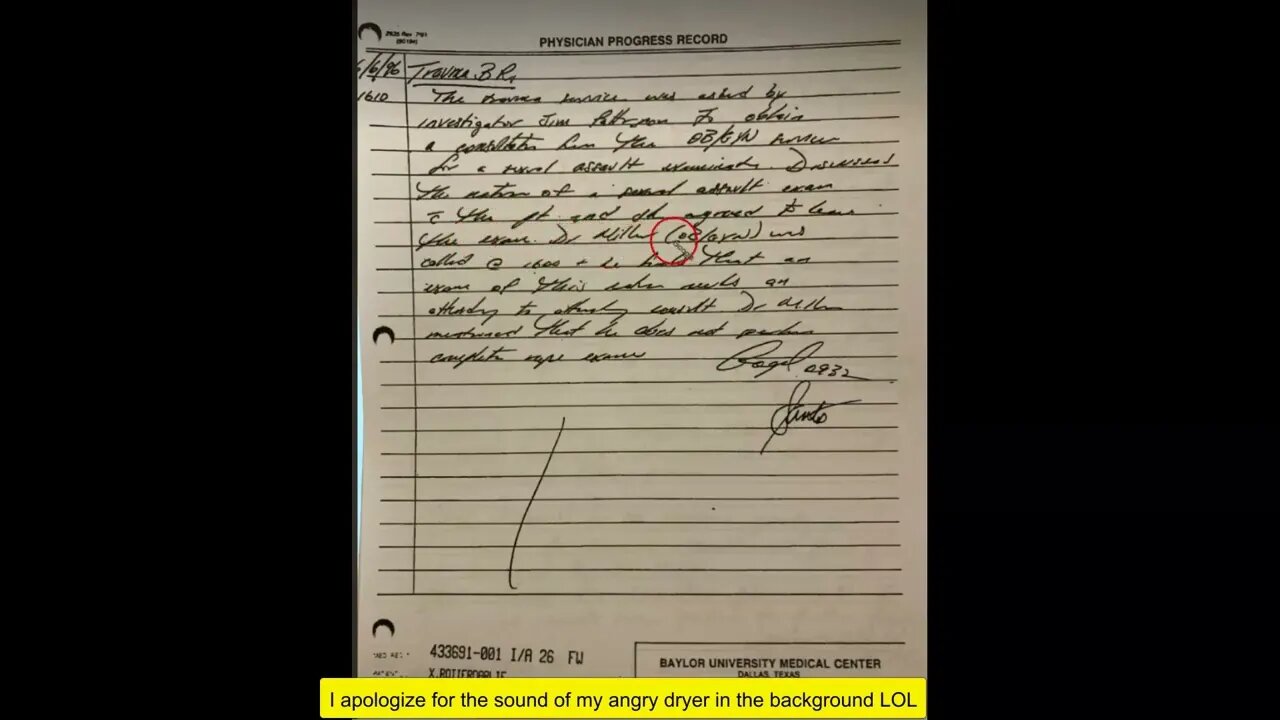 PHYSICIAN PROGRESS RECORD
6/6/96 Trauma B R.
1610 The trauma service was asked by
investigator Jim Patterson to obtain
a consultation from the OB/GYN service
for a sexual assault examination. Discussed
the nature of a sexual assault exam
c the pt and she agreed to have
the exam. Dr Miller (OB/GYN) was
called @ 1600 + he that an
exam of this nature needs an
attending to attending consult. Dr Miller
mentioned that he does not perform
complete rape exams
0932
433691-001 I/A 26 FW
BAYLOR UNIVERSITY MEDICAL CENTER
DALLAS, TEXAS
I apologize for the sound of my angry dryer in the background LOL